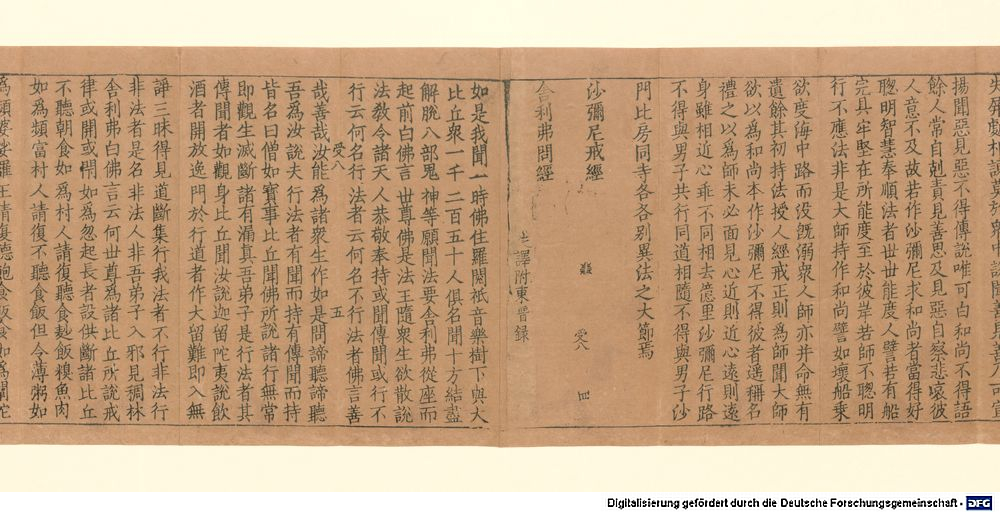 揚聞惡見惡不得傳說唯可白和尚不得語
餘人常自剋責見善思及見惡自察悲哀彼
人意不及故若作沙彌尼求和尚者當得好
聰明智慧奉順法者世世能度人譬若有船
完具牢堅在所能度至於彼岸若師不聰明
行不應法非是大師持作和尚譬如壞船乘
欲度海中路而没旣溺衆人師亦并命無有
遺餘其初持法授人經戒正則為師聞大師
欲以為和尚本作沙彌尼不得彼者遥稱名
禮之以為師未必面見心近則近心遠則遠
身雖相近心乖不同相去億里沙彌尼行路
不得與男子共行同道相隨不得與男子沙
門比房同寺各各別異法之大節焉
沙彌尼戒經
受八 四
舍利弗問經
失譯附東晉録
如是我聞一時佛住羅閱祇音樂樹下與大
比丘衆一千二百五十人俱名聞十方結盡
解脫八部鬼神等願聞法要舍利弗從座而
起前白佛言世尊佛是法王隨衆生欲散說
法教令諸天人恭敬奉持或聞傳聞或行不
行云何名行法者云何名不行法者佛言善
受八 五
哉善哉汝能為諸衆生作如是問諦聽諦聽
吾為汝說夫行法者有聞而持有傳聞而持
皆名曰僧如寳事比丘聞佛所說諸行無常
即觀生滅斷諸有漏真吾弟子是行法者其
傳聞者如觀身比丘聞汝說迦留陀夷說飲
酒者開放逸門於行道者作大留難即入無
諍三昧得見道斷集行我法者不行非法行
非法者是名非法人非吾弟子入邪見稠林
舍利弗白佛言云何世尊為諸比丘所說戒
律或開或閉如為忽起長者設供斷諸比丘
不聽朝食如為村人請復聽食麨飯糗魚肉
如為頻富村人請復不聽食飯但令薄粥如